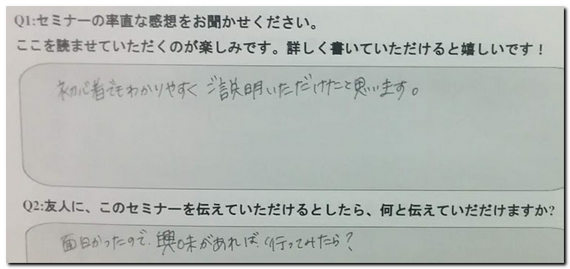 Q1:セミナーの率直な感想をお聞かせください。
ここを読ませていただくのが楽しみです。詳しく書いていただけると嬉しいです！
初心者でもわかりやすく ご説明いただけたと思います。
Q2:友人に、このセミナーを伝えていただけるとしたら、何と伝えていだだけますか?
面白かったので、興味があれば、行ってみたら？